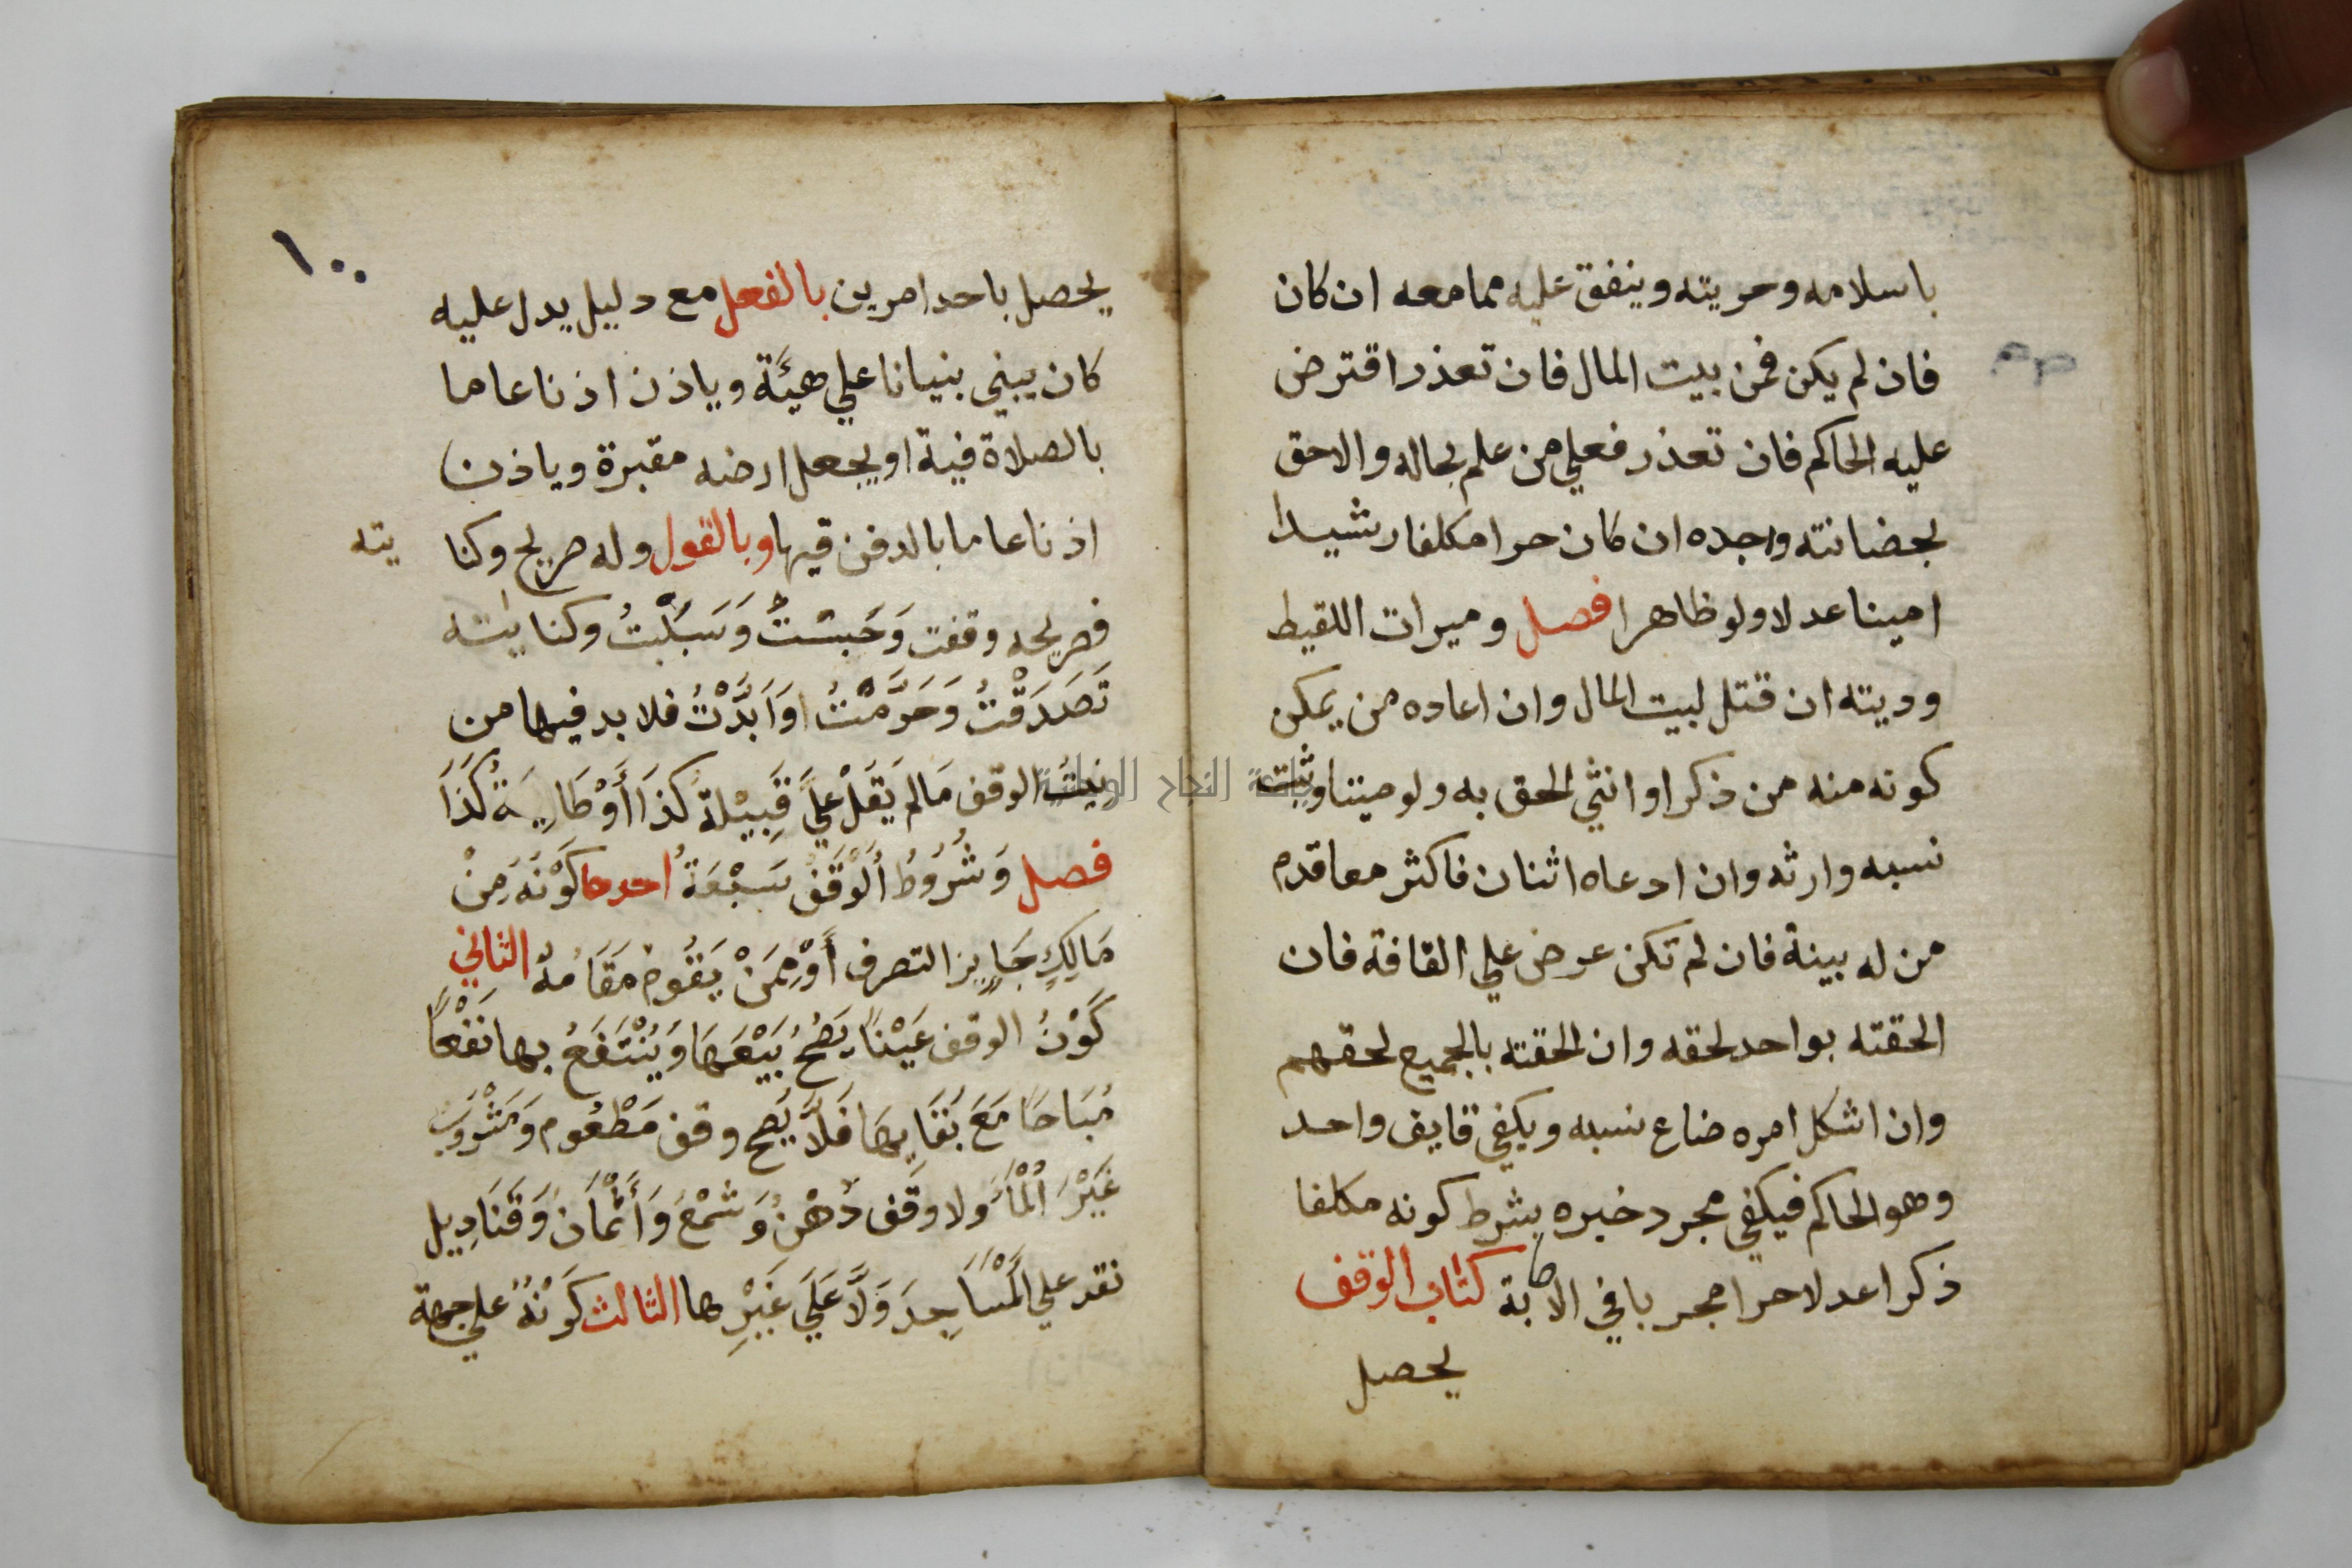 باسلامه وحريته وينفق عليه مما معه ان كان
فان لم يكن فمن بيت المال فان تعذر اقترض
عليه الحاكم فان تعذر فعلي من علم بحاله والاحق
بحضانته واجده ان كان حرا مكلفا رشيدا
امينا عدلا ولو ظاهرا فصل وميراث اللقيط
وديته ان قتل لبيت المال وان اعاده من يمكن
كونه منه من ذكر او انثي الحق به ولو ميتا وثبت
نسبه وارثه وان ادعاه اثنان فاكثر معا قدم
من له بينة فان لم تكن عرض علي القافة فان
الحقته بواحد لحقه وان الحقته بالجميع لحقهم
وان اشكل امره ضاع نسبه ويكفي قايف واحد
وهو الحاكم فيكفي مجرد خبره بشرط كونه مكلفا
ذكرا عدلا حرا مجربا في الاصابة كتاب الوقف
يحصل
١٠٠
يحصل باحد امرين بالفعل مع دليل يدل عليه
كان يبني بنيانا علي هيئة وياذن اذنا عاما
بالصلاة فية او يجعل ارضه مقبرة وياذن
اذنا عاما بالدفن فيها وبالقول وله صريح وكنا
يته
فصريحه وقفت وَحَبسْتُ وَسَبَّلْتُ وكنايته
تَصَدَقْتُ وَحَرَّمْتُ اوَاَبَّدْتُ فلا بد فيها من
نيتُ الوقف مَالم يَقلْ عليَ قَبِيْلة كَذَا أَوْ طَايِفَةُ كَذَا
فصل وَشُرُوطُ اُلْوَقَفْ سَبْعَةُ احدها كَوْنَهُ مِنْ
مَالِكٍ جَايز التصرف أَوْ مِمَنْ يَقُومُ مَقَامهُ الثاني
كَوْنُ الوقف عَيْنًا يَصُحُ بَيْعَهَا وَيُنْتَفَعُ بها نَفْعًا
مُبَاحًا مَعَ بَقَايهَا فَلاَ يَصح وقف مَطْعُوم وَمَشْرُوبْ
غَيْرَ اُلْمَاَ ولا وَقَف دُهْنُ وَشمْعُ وَأَثْمَانُ وَقَنَادِيل
نقد علي اَلْمَسْاَجِدَ وَلاَ عَلَي غَيْرِها الثالث كَوْنُهُ علي جهة
جامعة النجاح الوطنية